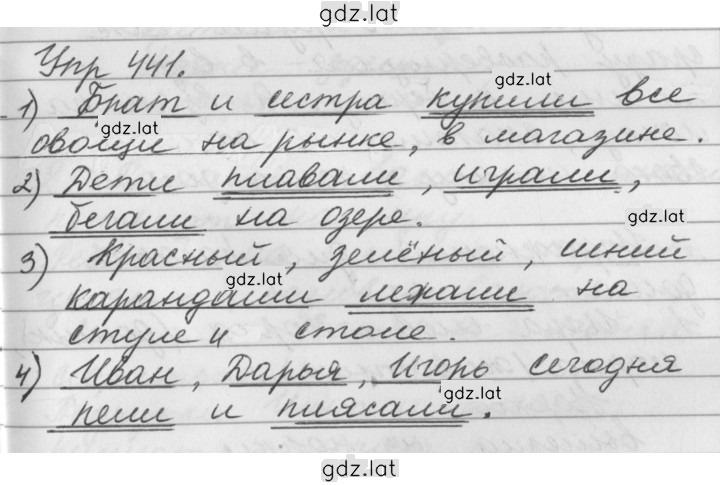 gdz.lat
Упр 441.
gdz.lat
1) Брат и сестра купили все
gdz.lat
овощи на рынке, в магазине.
2) Дети плавали, играли,
бегали на озере.
gdz.lat
3) Красный, зелёный, синий
gdz.lat
карандаши лежали на
стуле и столе.
4) Иван, Дарья, Игорь сегодня
gdz.lat
пели и плясали.
gdz.lat